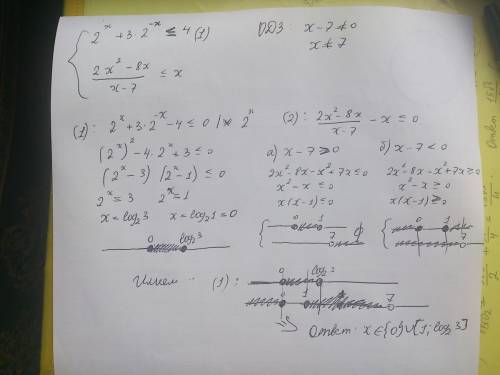 2^x + 3·2^{-x} ≤ 4 (1)
ОДЗ: x-7≠0
x≠7
\frac{2x^2-8x}{x-7} ≤ x
(1): 2^x+3·2^{-x}-4≤0 /* 2^x
(2^x)^2-4·2^x+3≤0
(2^x-3)(2^x-1)≤0
2^x=3 2^x=1
x=log_2 3 x=log_2 1=0
0 log_2 3
(2): \frac{2x^2-8x}{x-7}-x≤0
а) x-7>0
2x^2-8x-x^2+7x≤0
x^2-x≤0
x(x-1)≤0
0 1
7 ∅
б) x-7<0
2x^2-8x-x^2+7x≥0
x^2-x≥0
x(x-1)≥0
0 1
7
Имеем: (1):
0 log_2 3
0 1 7
Ответ: x∈{0}∪[1; log_2 3]